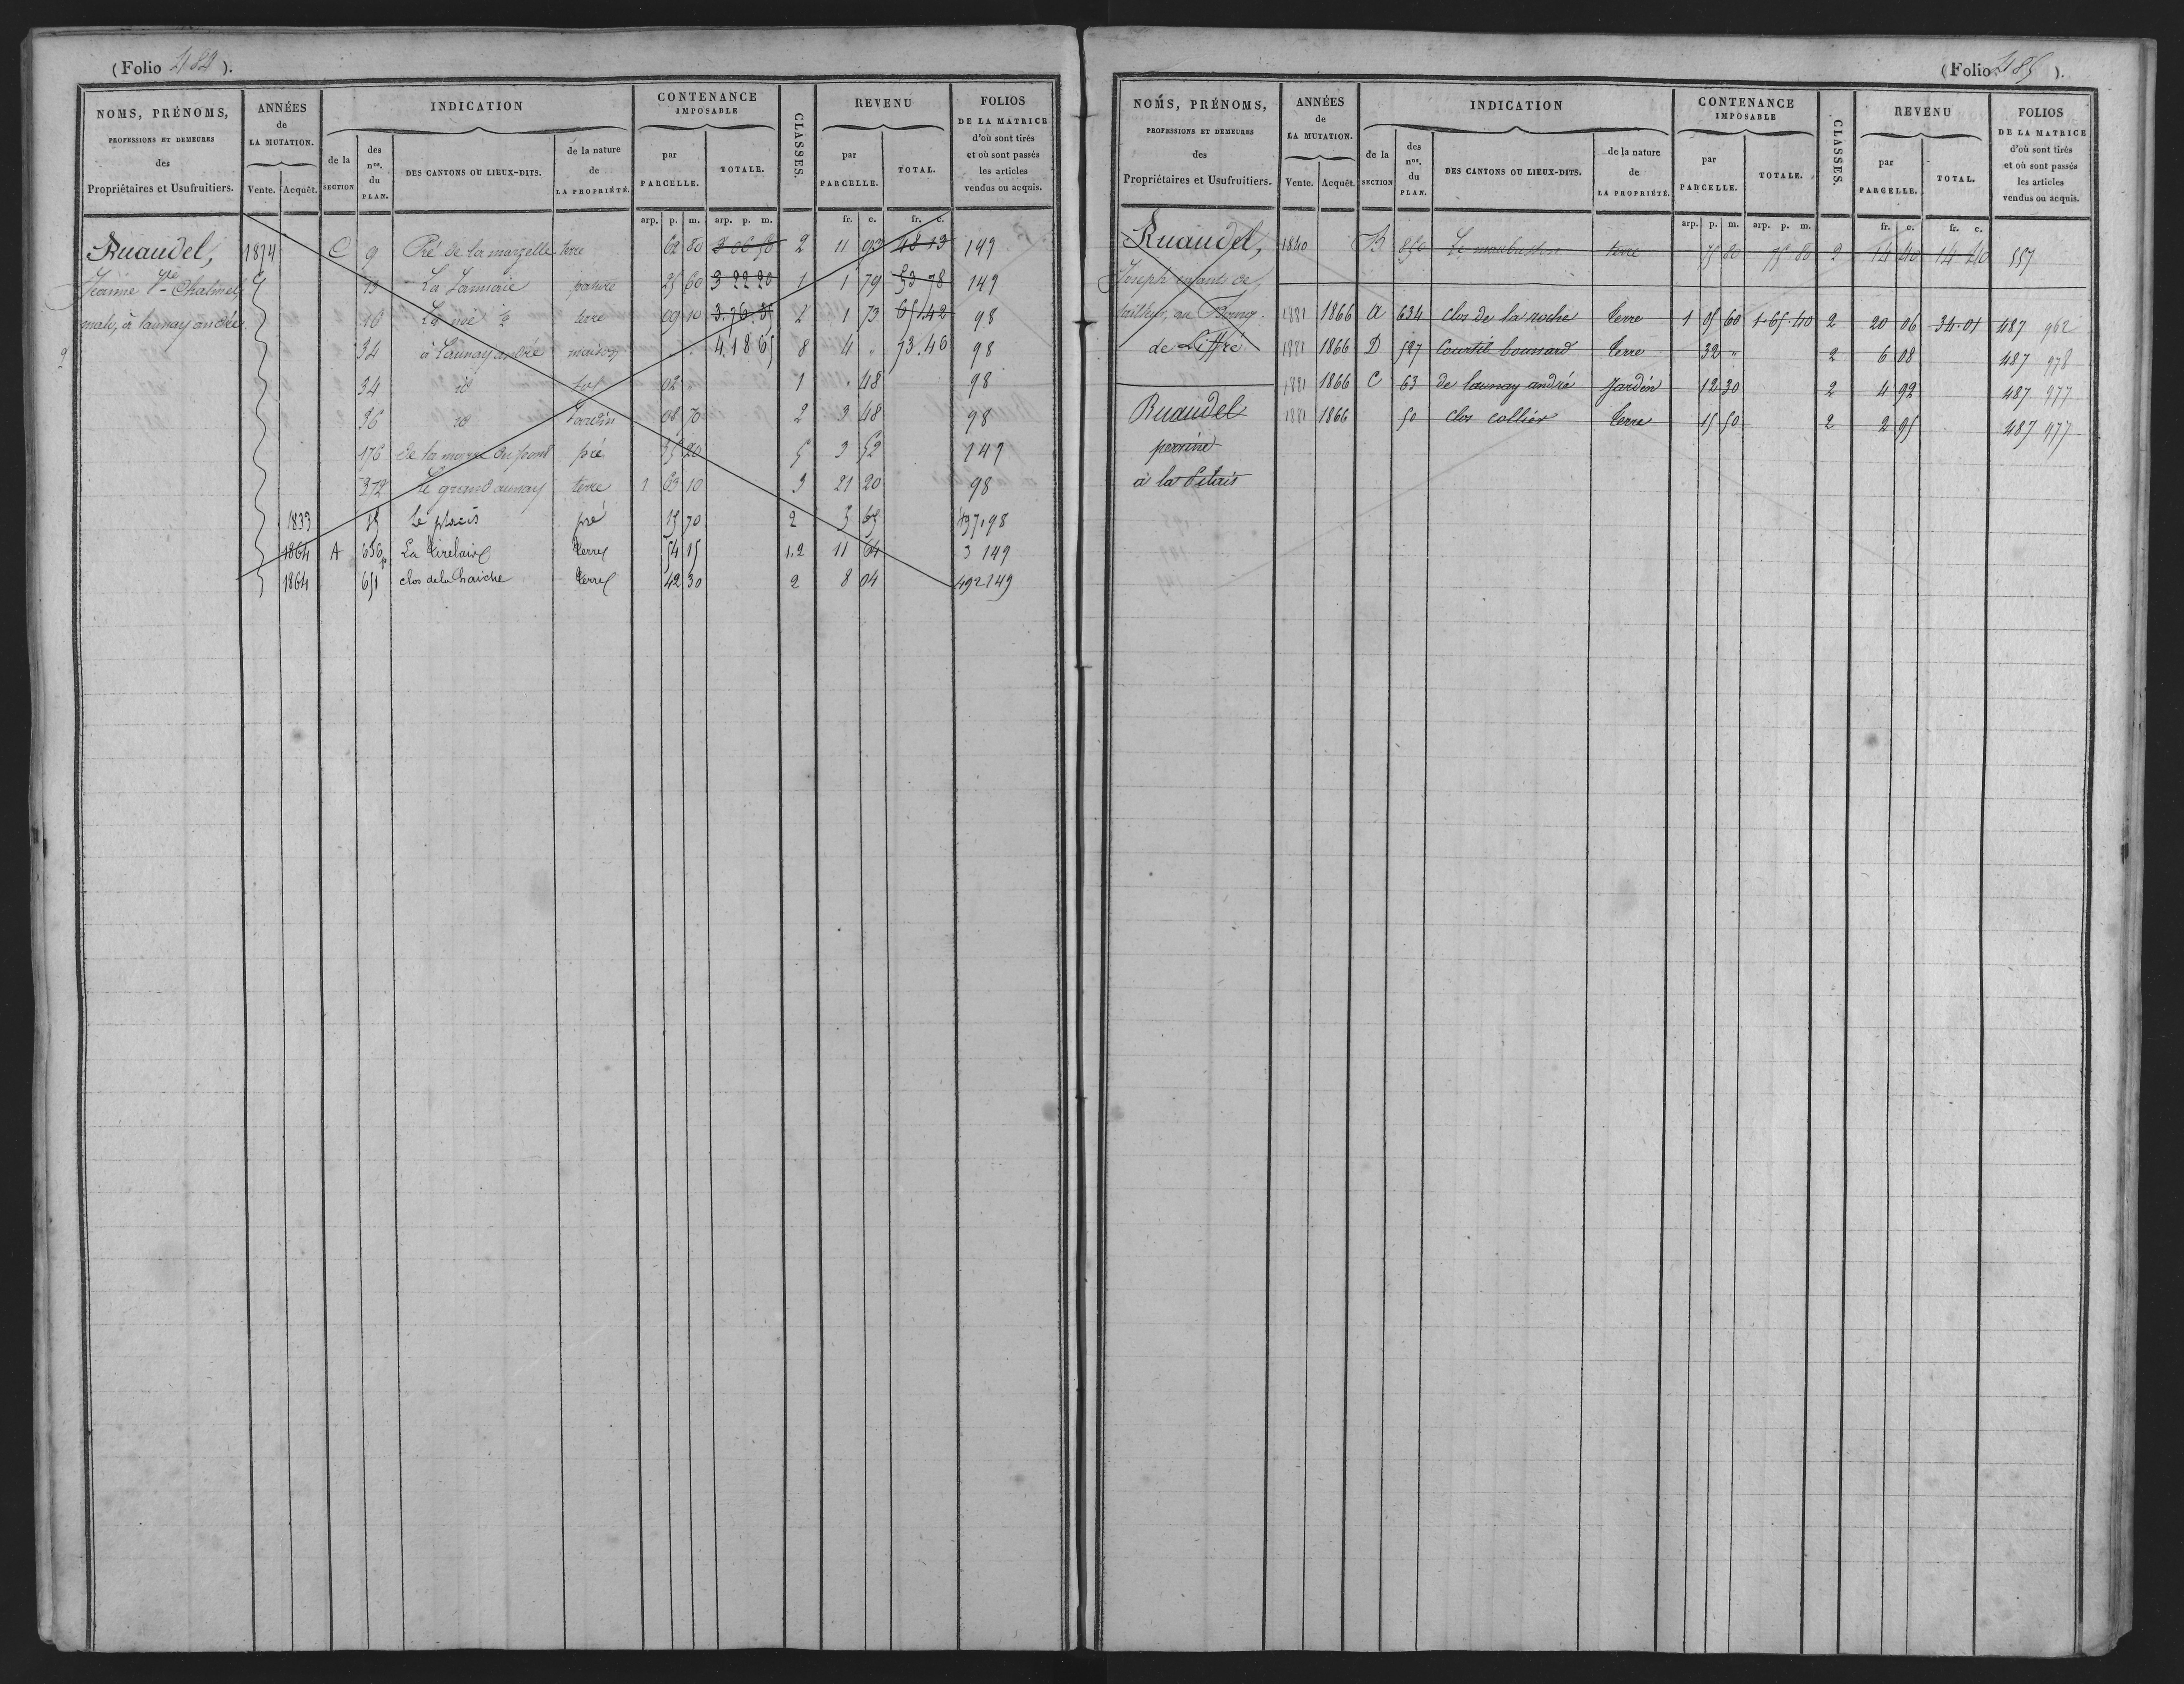 (Folio 484).
NOMS, PRÉNOMS, PROFESSIONS ET DEMEURES des Propriétaires et Usufruitiers.
ANNÉES de LA MUTATION. Vente. Acquêt.
INDICATION
de la SECTION
des nos. du PLAN.
DES CANTONS OU LIEUX-DITS.
de la nature de LA PROPRIÉTÉ.
CONTENANCE IMPOSABLE
par PARCELLE.
TOTALE.
CLASSES.
REVENU
par PARCELLE.
TOTAL.
FOLIOS DE LA MATRICE d'où sont tirés et où sont passés les articles vendus ou acquis.
arp. p. m. arp. p. m. fr. c. fr. c.
Ruaudel, 1874 C 9 Pré de la marzelle terre 62 80 3 06 50 2 11 93 48 13 149
Jeanne Vve Chatmel 13 La Lannaie pature 25 60 3 22 20 1 1 79 53 78 149
à launay andrée 16 terre 09 10 3.76.35 2 1 73 65.42 98
2 34 à Launay andrée maison 4.18.65 8 4 " 73.46 98
34 id sol 02 " 1 " 48 98
36 id Jardin 08 70 2 3 48 98
176 de la marre du pont pré 35 20 5 3 52 149
372 Le grand aunay terre 1 63 10 3 21 20 98
1833 15 Le placis pré 15 70 2 5 65 437.98
1864 A 656p La Tirelaire terre 54 15 1.2 11 64 3 149
1864 651 clos de la haiche terre 42 30 2 8 04 492 149
(Folio 485).
NOMS, PRÉNOMS, PROFESSIONS ET DEMEURES des Propriétaires et Usufruitiers.
ANNÉES de LA MUTATION. Vente. Acquêt.
INDICATION
de la SECTION
des nos. du PLAN.
DES CANTONS OU LIEUX-DITS.
de la nature de LA PROPRIÉTÉ.
CONTENANCE IMPOSABLE
par PARCELLE.
TOTALE.
CLASSES.
REVENU
par PARCELLE.
TOTAL.
FOLIOS DE LA MATRICE d'où sont tirés et où sont passés les articles vendus ou acquis.
arp. p. m. arp. p. m. fr. c. fr. c.
Ruaudel, 1840 B 850 terre 75 80 75 80 2 14 40 14 40 557
Joseph enfants de
tailleur, au Bourg 1881 1866 A 634 clos de la roche terre 1 05 60 1.65.40 2 20 06 34.01 487 962
de Liffré 1881 1866 D 527 Courtil bounard terre 32 " 2 6 08 487 978
1881 1866 C 63 de launay andré Jardin 12 30 2 4 92 487 977
Ruaudel 1881 1866 50 clos collier terre 15 50 2 2 95 487 977
perrine
à la Pilais